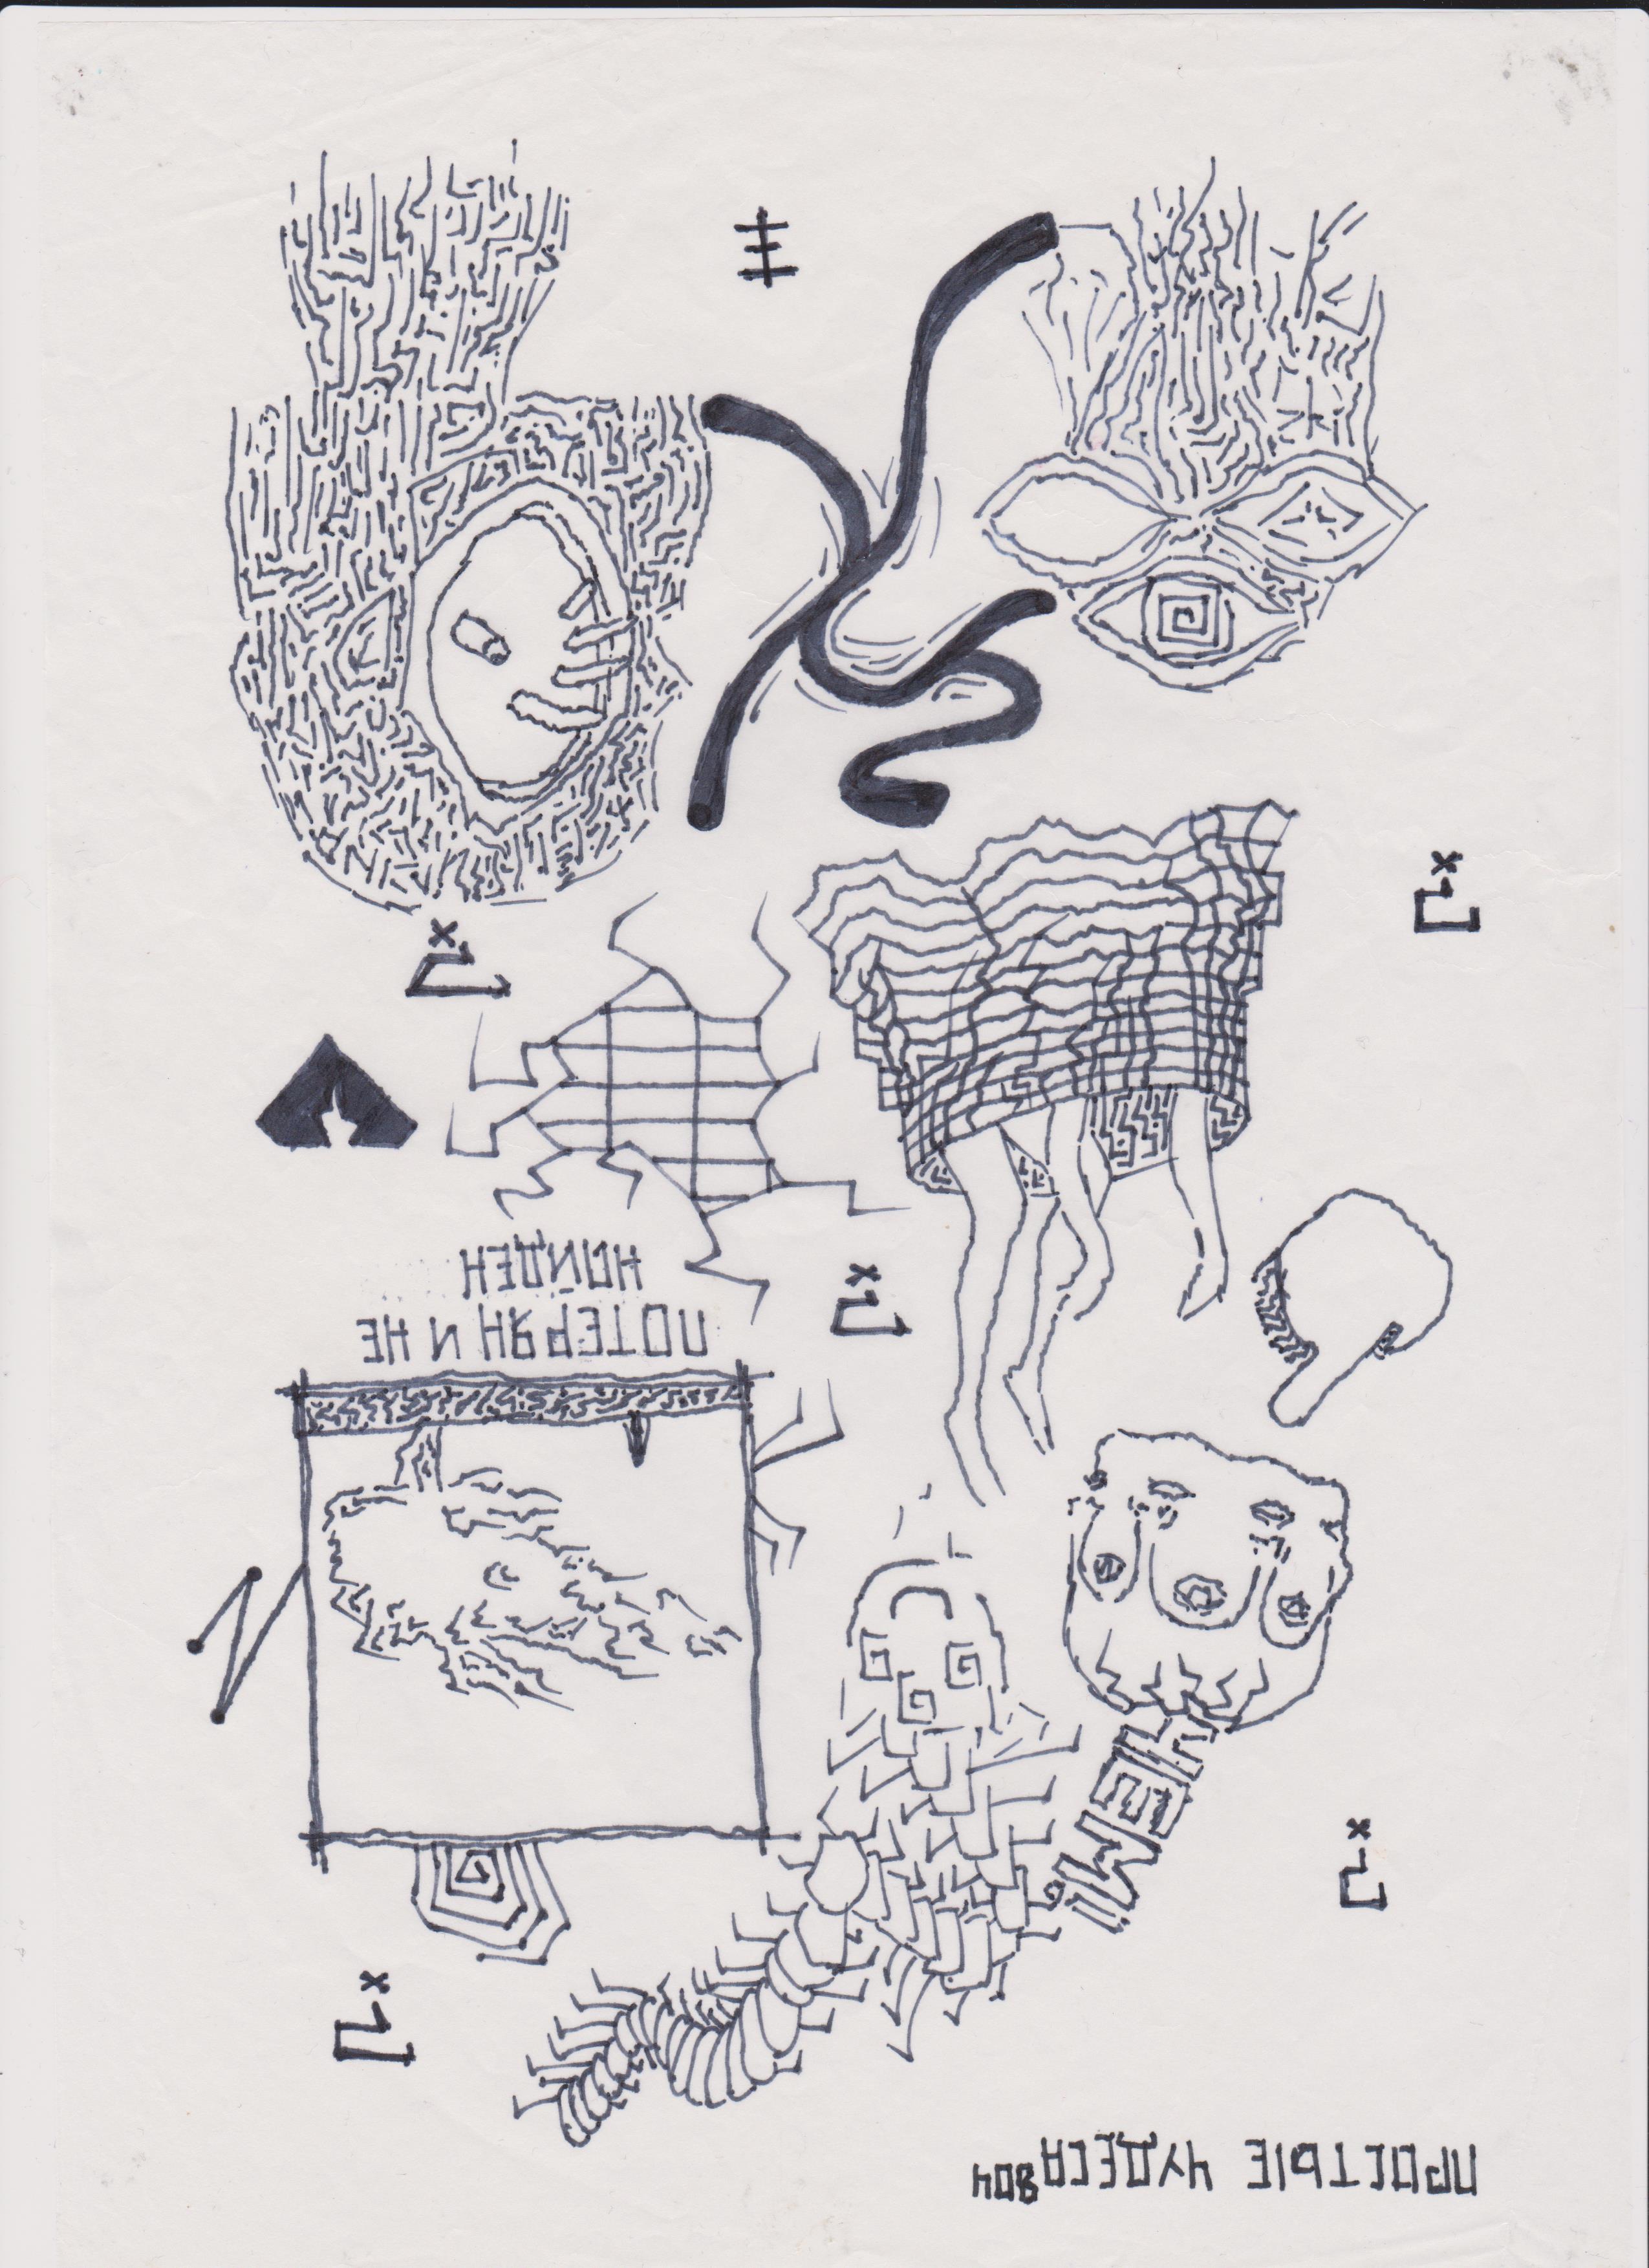 ПРОСТЫЕ ЧУДЕСА⁸⁰⁴
НЕМ
ПОТЕРЯН И НЕ
НАЙДЕН